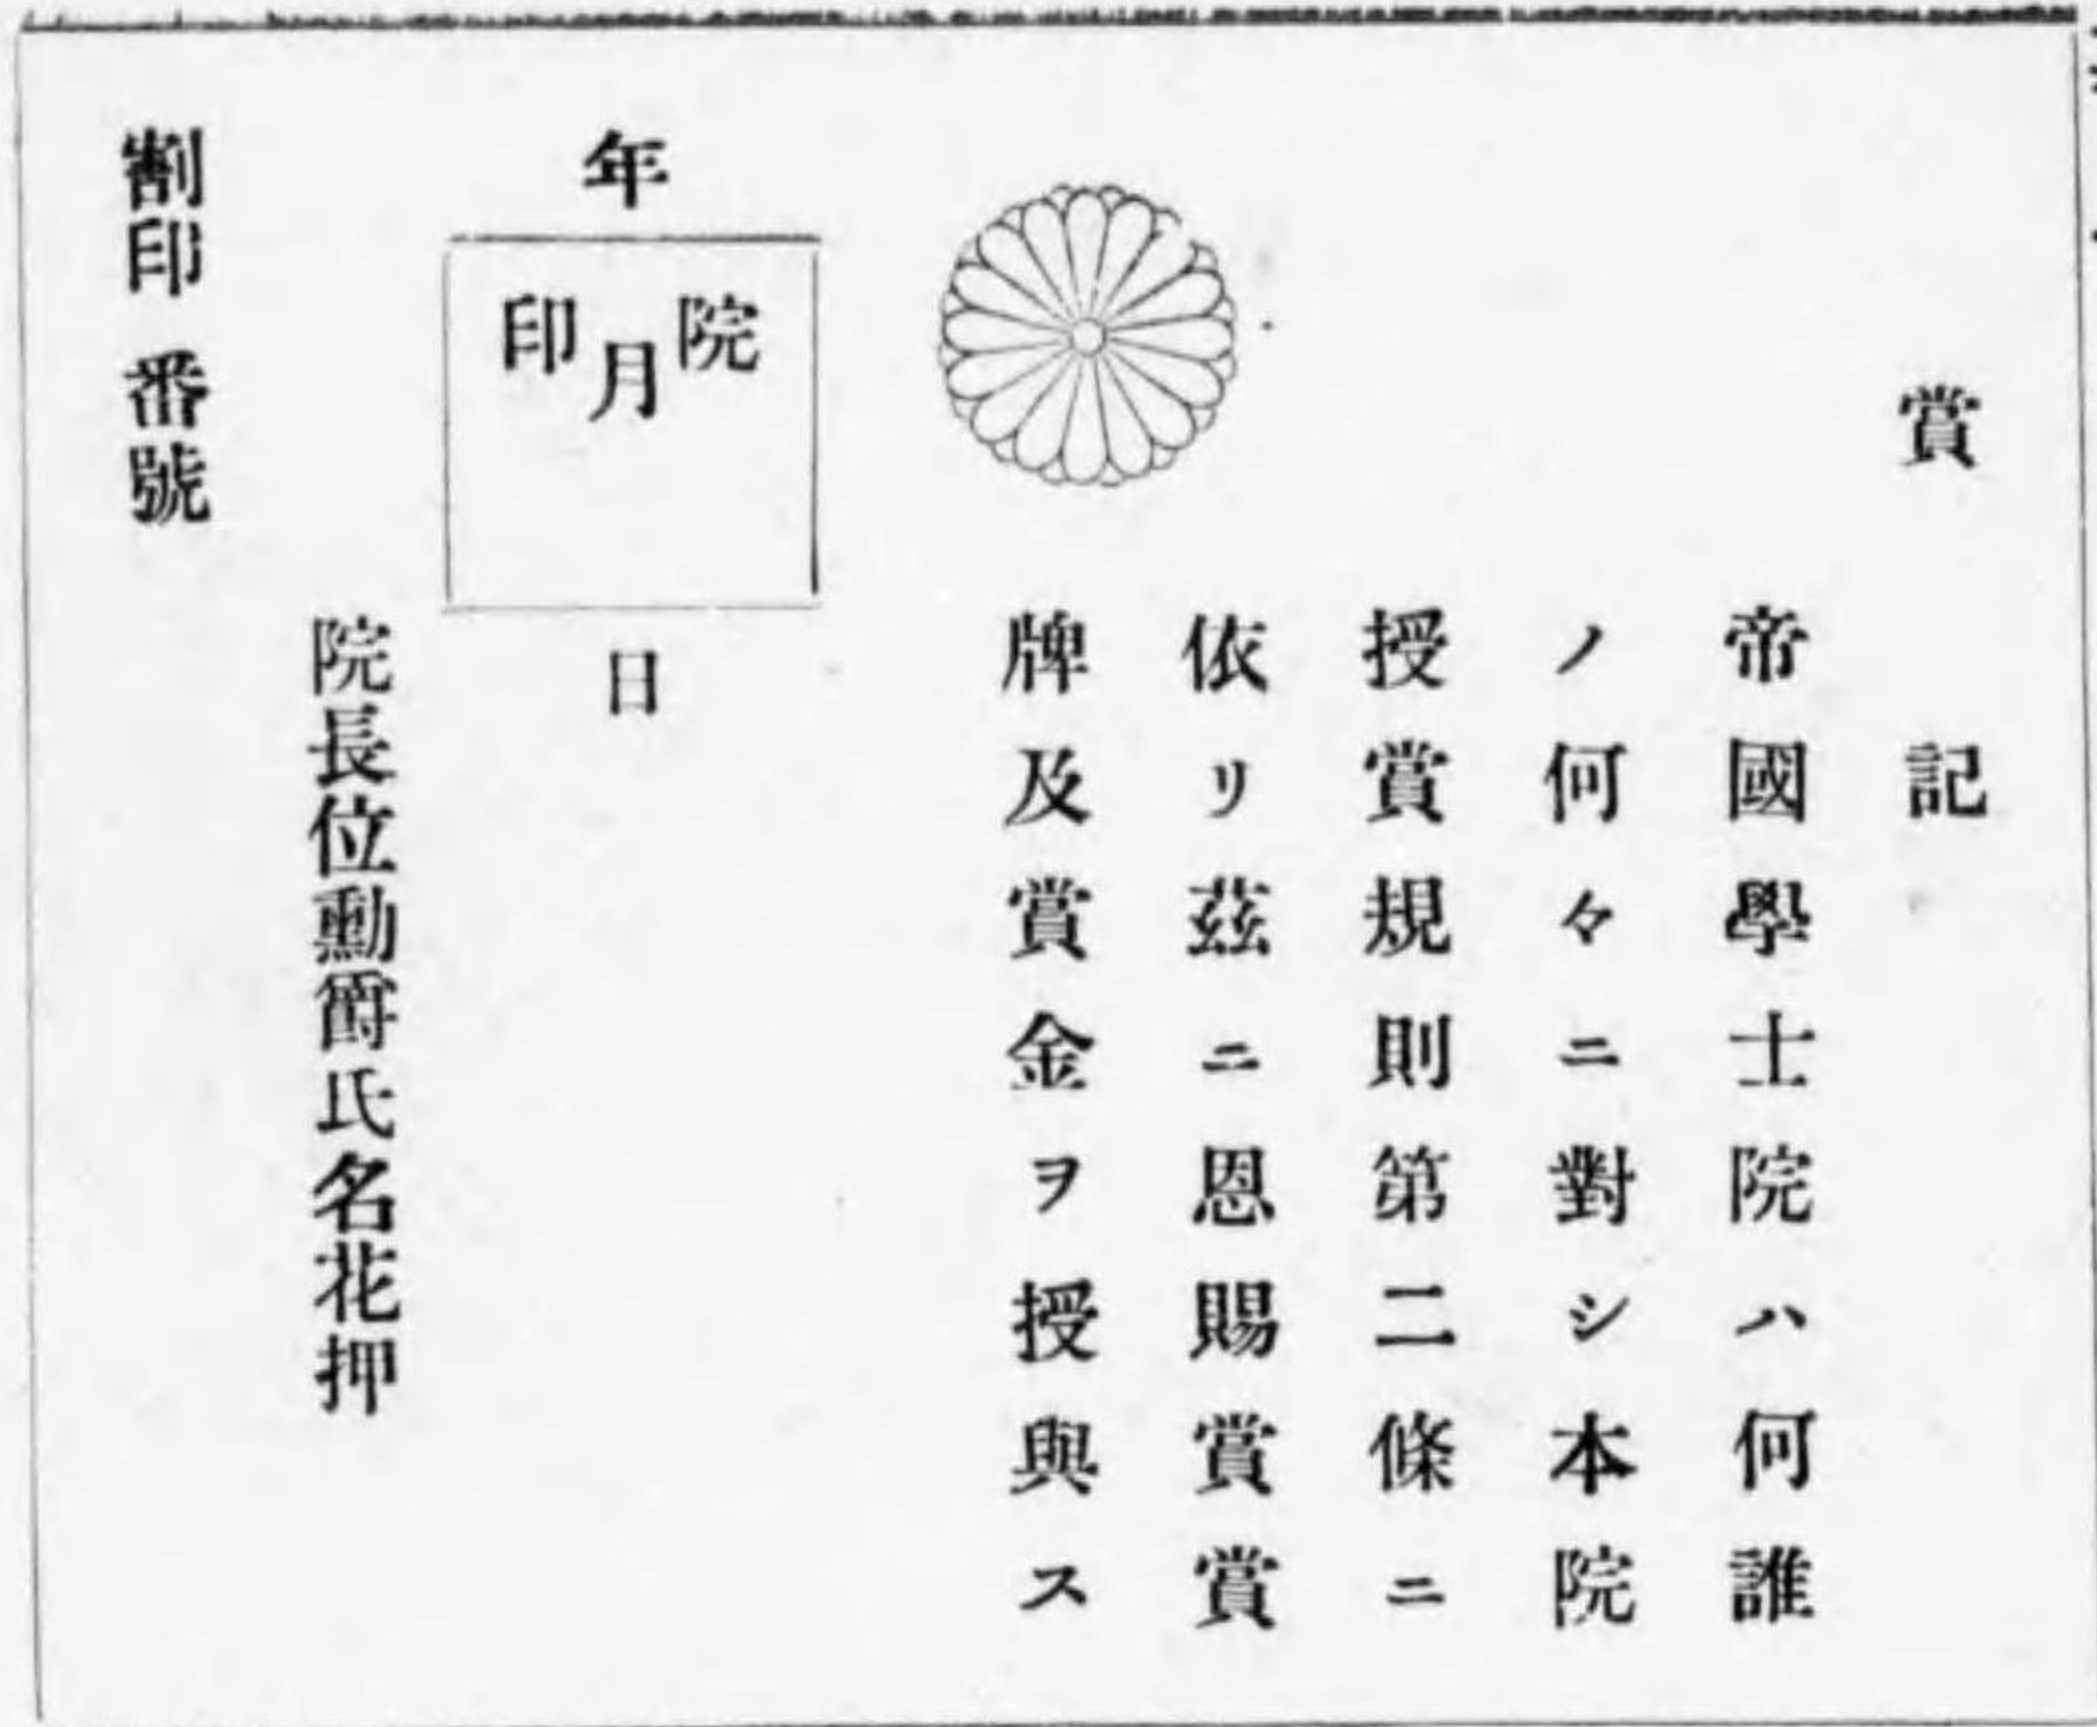 賞記
帝國學士院ハ何誰
ノ何々ニ對シ本院
授賞規則第二條ニ
依リ茲ニ恩賜賞賞
牌及賞金ヲ授與ス
年月日
院印
院長位勳爵氏名花押
割印番號